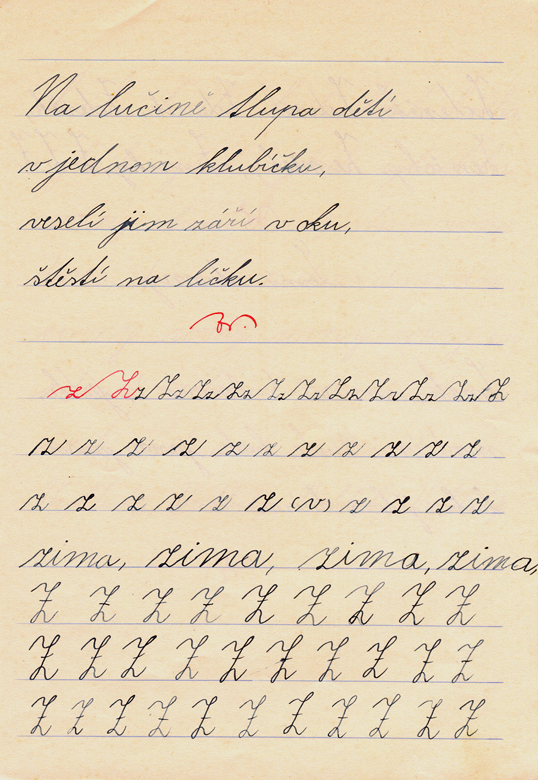 Na lučině tlupa dětí
v jednom klubíčku,
veselí jim září v oku,
štěstí na líčku.
z Zz Zz Zz Zz Zz Zz Zz Zz Zz Zz Z
z z z z z z z z z z z
z z z z z z (v) z z z z
zima, zima, zima, zima,
Z Z Z Z Z Z Z Z Z
Z Z Z Z Z Z Z Z Z Z
Z Z Z Z Z Z Z Z Z Z Z